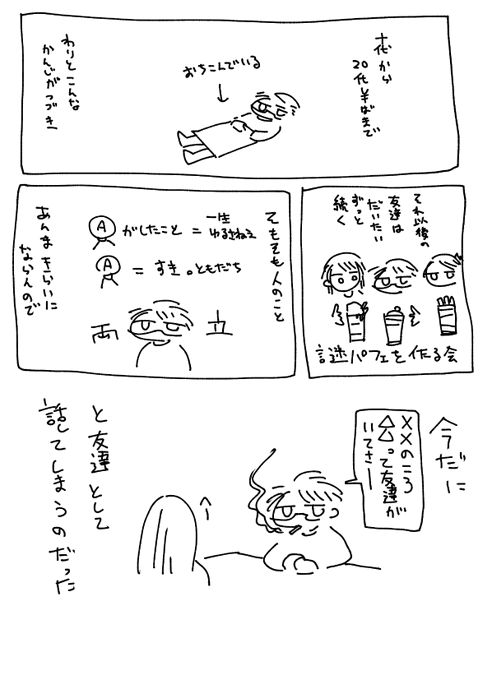 十代から
20代半ばまで
おちこんでいる
わりとこんな
かんじがつづき
それ以後の
友達は
だいたい
ずっと
続く
謎パフェを作る会
でもでも人のこと
A がしたこと = 一生
ゆるさねえ
A = すき。ともだち
両 立
あんま きらいに
ならんので
今だに
××のころ
△△って友達が
いてさー
と友達として
話してしまうのだった